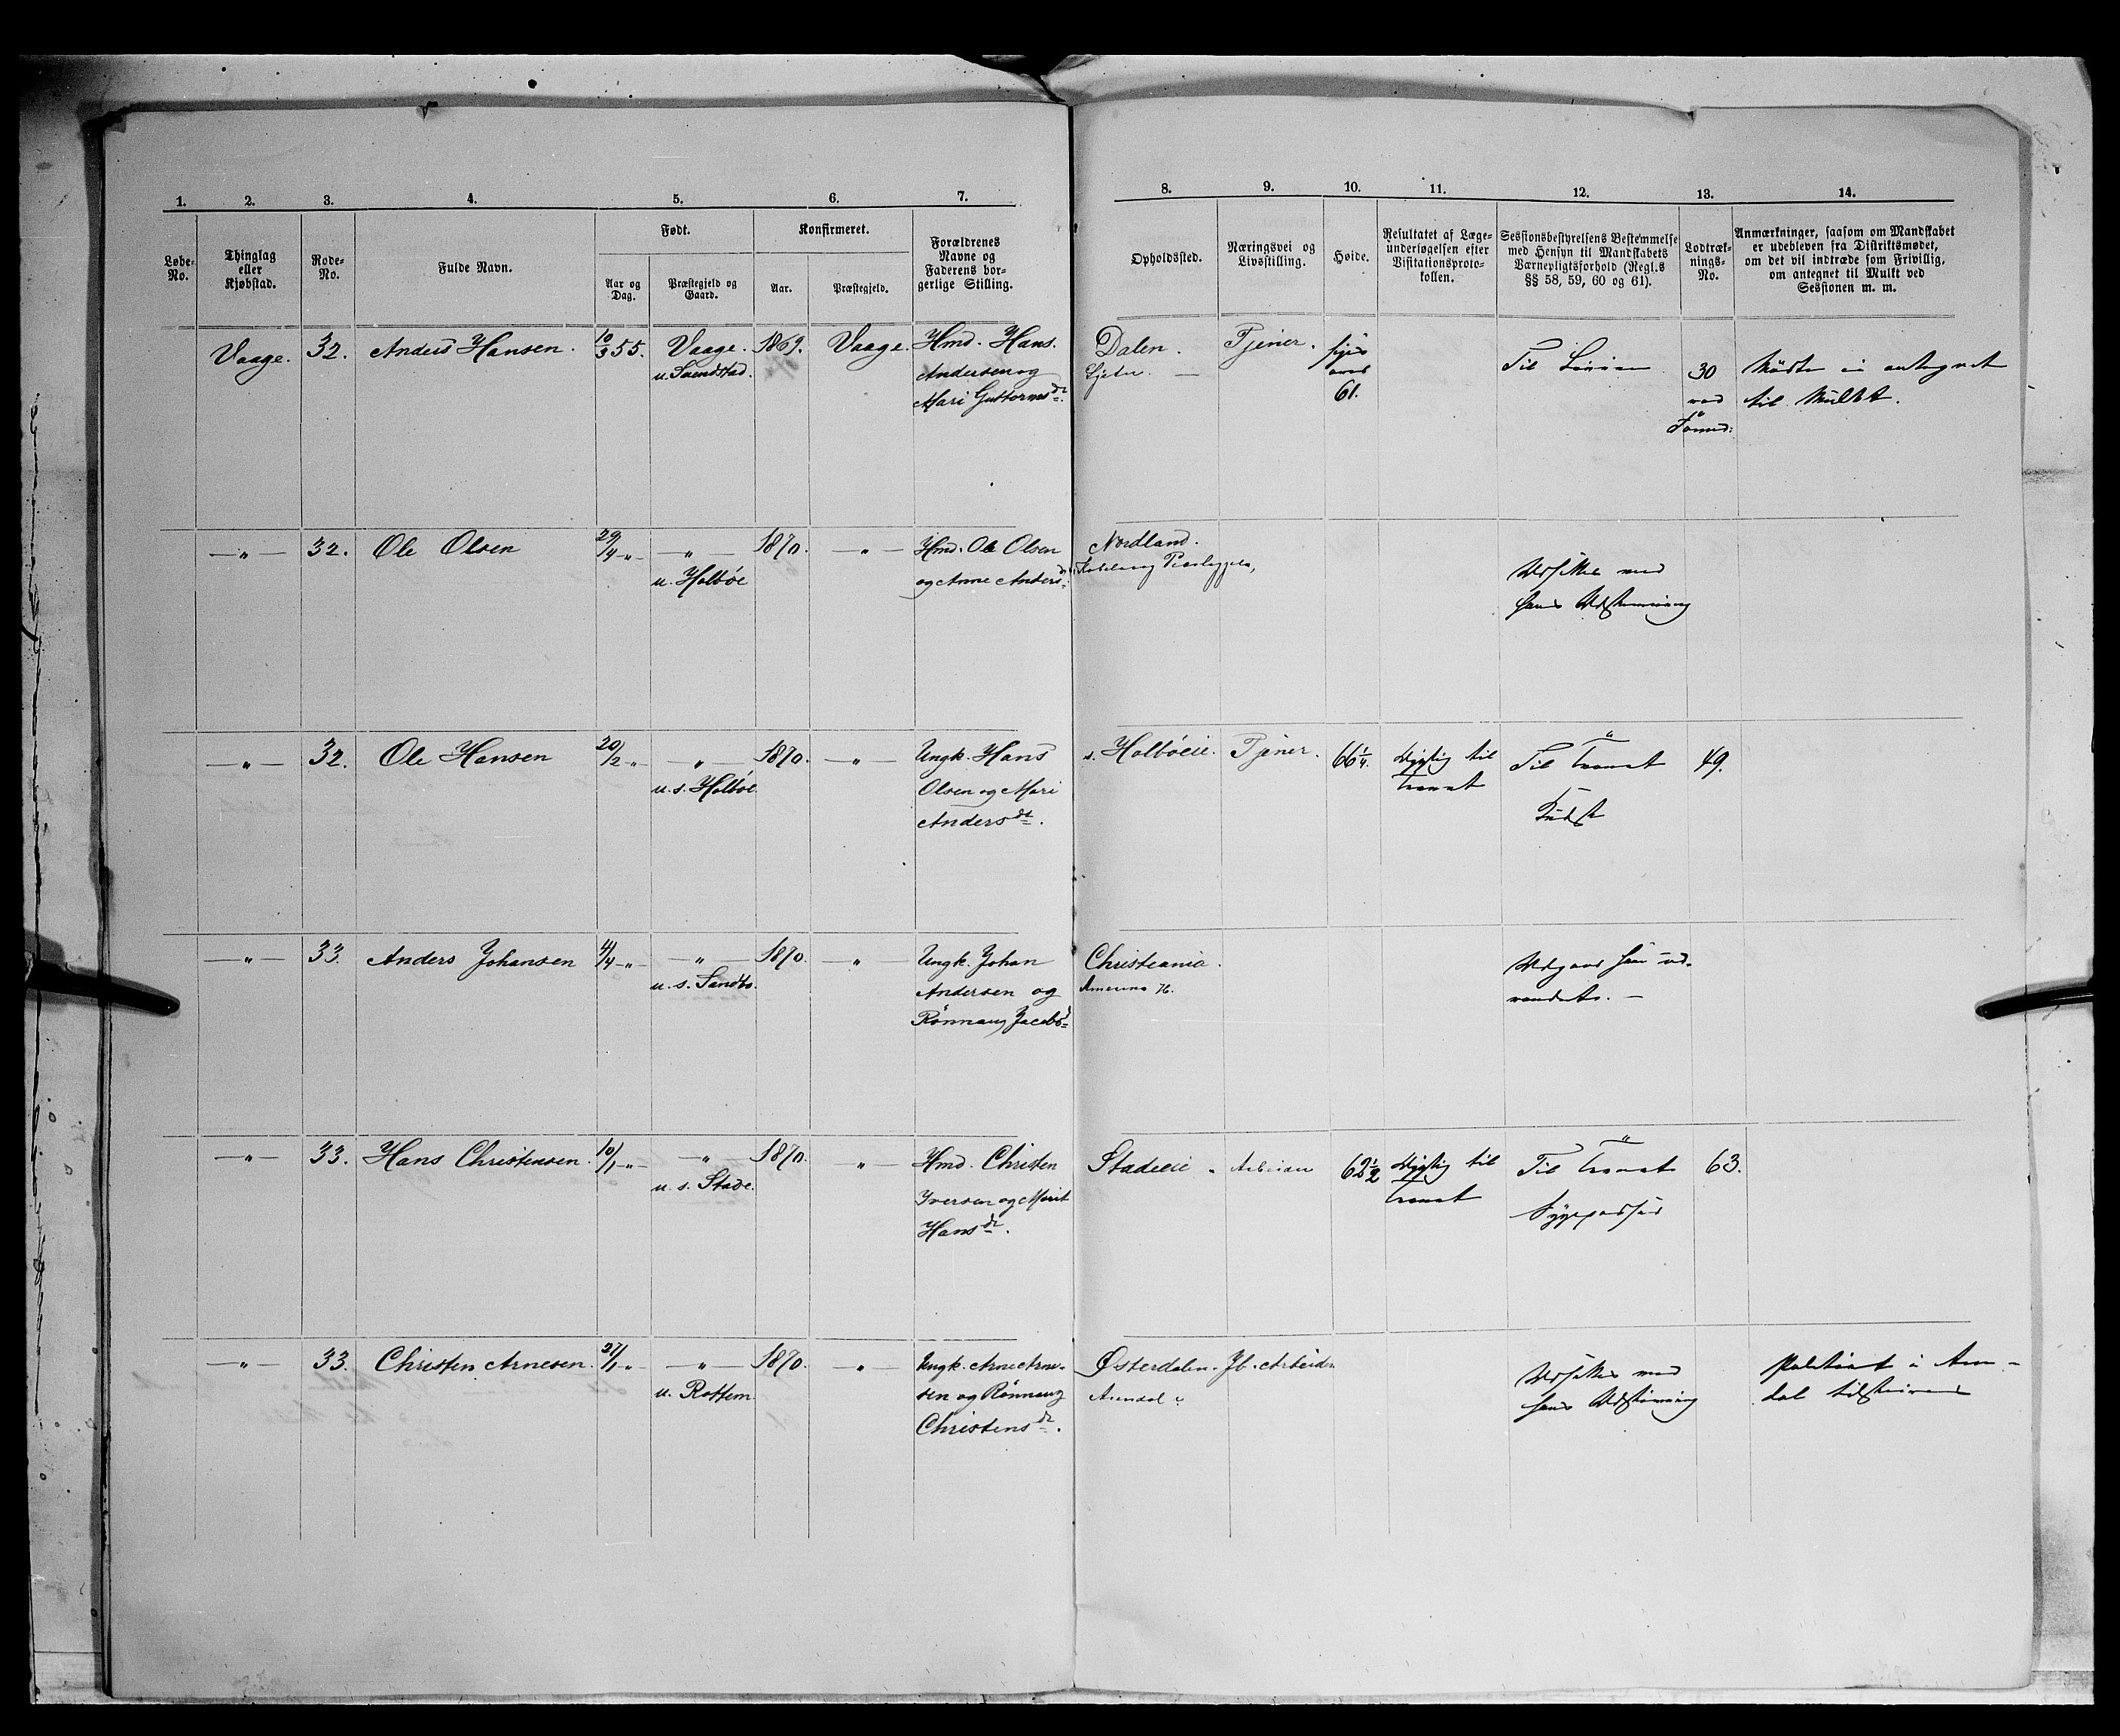 1. 2. 3. 4. 5. 6. 7. 8. 9. 10. 11. 12. 13. 14.
Løbe-
No.
Thinglag
eller
Kjøbstad.
Rode-
No.
Fulde Navn.
Født.
Aar og
Dag.
Præstegjeld og
Gaard.
Konfirmeret.
Aar.
Præstegjeld.
Forældrenes
Navne og
Faderens bor-
gerlige Stilling.
Opholdssted.
Næringsvei og
Livsstilling.
Høide.
Resultatet af Læge-
undersøgelsen efter
Visitationsproto-
kollen.
Sessionsbestyrelsens Bestemmelse
med Hensyn til Mandskabets
Værnepligtsforhold (Regl.s
§§ 58, 59, 60 og 61).
Lodtræk-
nings-
No.
Anmærkninger, saasom om Mandskabet
er udebleven fra Distriktsmødet,
om det vil indtræde som Frivillig,
om antegnet til Mulkt ved
Sessionen m. m.
Vaage. 32. Anders Hansen. 10/3 55. Vaage. 1869. Vaage. Hmd. Hans
u. Svendstad.
Andersen og
Mari Guttormsdr.
Dalen. Tjener.
61.
Til Linien 30
Mødte ei antegnet
til Mulkt.
—„— 32. Ole Olsen 29/4 „ —„— 1870. —„— Hmd. Ole Olsen
u. Holbøe
og Anne Andersd.
Nordland.
Udsættes med
hans Udskrivning
—„— 32. Ole Hansen 20/2 „ —„— 1870. —„— Ungk. Hans
u. s. Holbøe.
Olsen og Mari
Andersdr.
s. Holbøeie. Tjener. 66 1/4. Dygtig til
Trænet
Til Trænet 49.
Kudsk
—„— 33. Anders Johansen 4/4 „ —„— 1870. —„— Ungk. Johan
u. s. Sandbo.
Andersen og
Rønnaug Jacobsd
Christiania.
Amerika 76.
Udgaar som ud-
vandret. —
—„— 33. Hans Christensen. 10/1 „ —„— 1870. —„— Hmd. Christen
u. s. Stade.
Iversen og Marit
Hansdr.
Stadeeie „ Arbeider 62 1/2 Dygtig til
Trænet
Til Trænet 63.
Sygepasser
—„— 33. Christen Arnesen. 27/1 „ —„— 1870. „ Ungk. Arne Arne-
u. Rottem
sen og Rønnaug
Christensdr.
Østerdalen. Jb. Arbeider
Arendal
Udsættes med
hans Udskrivning
Politiet i Aren-
dal tilskrives